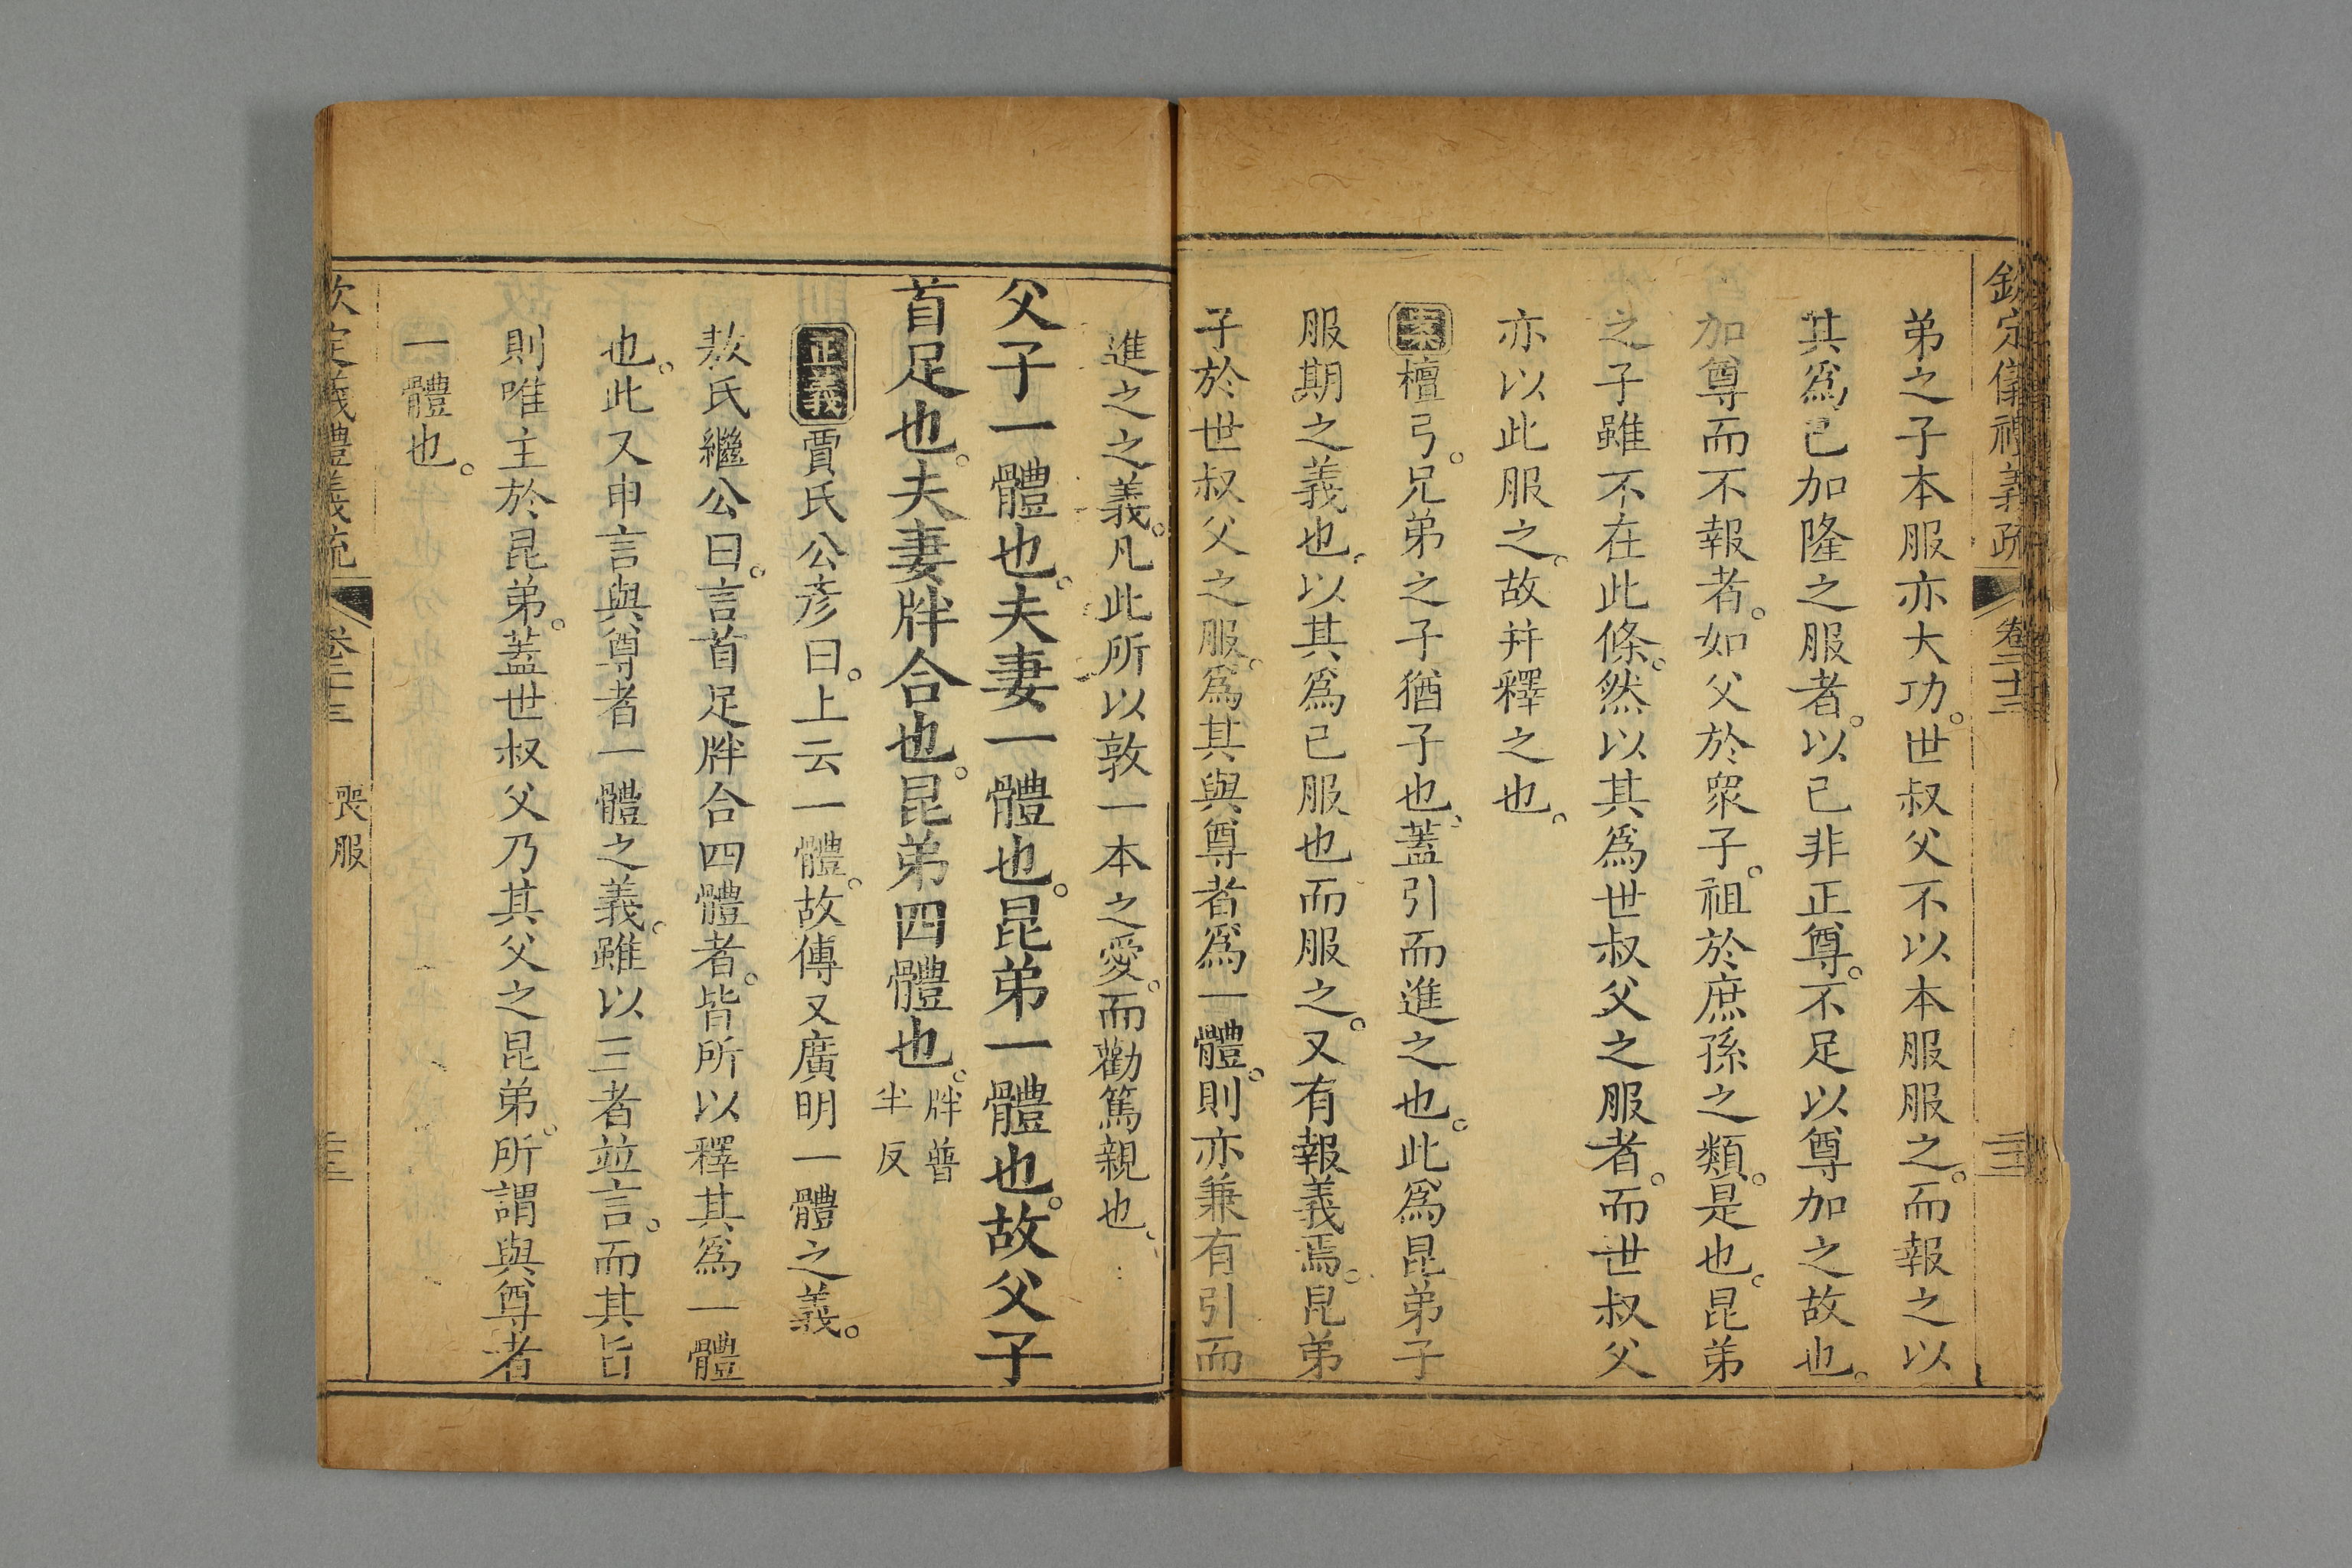 欽定儀禮義疏 卷二十三
弟之子本服亦大功。世叔父不以本服服之。而報之以
其爲己加隆之服者。以己非正尊。不足以尊加之故也。
加尊而不報者。如父於衆子。祖於庶孫之類。是也。昆弟
之子雖不在此條。然以其爲世叔父之服者。而世叔父
亦以此服之。故并釋之也。
案檀弓。兄弟之子猶子也、蓋引而進之也。此爲昆弟子
服期之義也。以其爲己服也而服之。又有報義焉。昆弟
子於世叔父之服。爲其與尊者爲一體。則亦兼有引而
進之之義。凡此所以敦一本之愛。而勸篤親也、
父子一體也。夫妻一體也。昆弟一體也。故父子
首足也。夫妻牉合也。昆弟四體也。牉普半反
正義賈氏公彥曰。上云一體。故傳又廣明一體之義。
敖氏繼公曰。言首足牉合四體者。皆所以釋其爲一體
也。此又申言與尊者一體之義。雖以三者並言。而其旨
則唯主於昆弟。蓋世叔父乃其父之昆弟。所謂與尊者
一體也。
欽定儀禮義疏 卷二十三 喪服